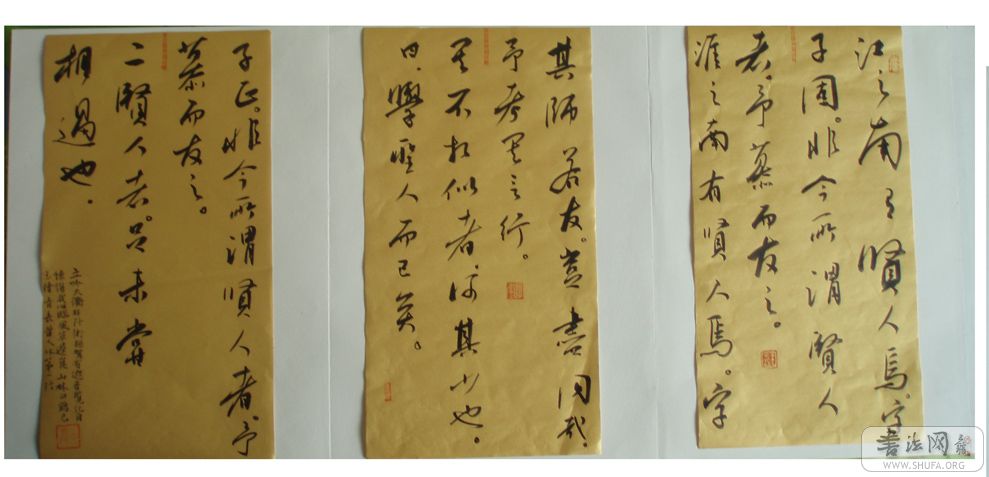 江之南有賢人焉。字
子固。非今所謂賢人
者。予慕而友之。
淮之南有賢人焉。字
子正。非今所謂賢人者。予
慕而友之。
二賢人者。足未嘗
相過也。
其師若友。豈盡同哉。
予考其言行。
其不相似者。何其少也。
曰。學聖人而已矣。
書法网
WWW.SHUFA.ORG